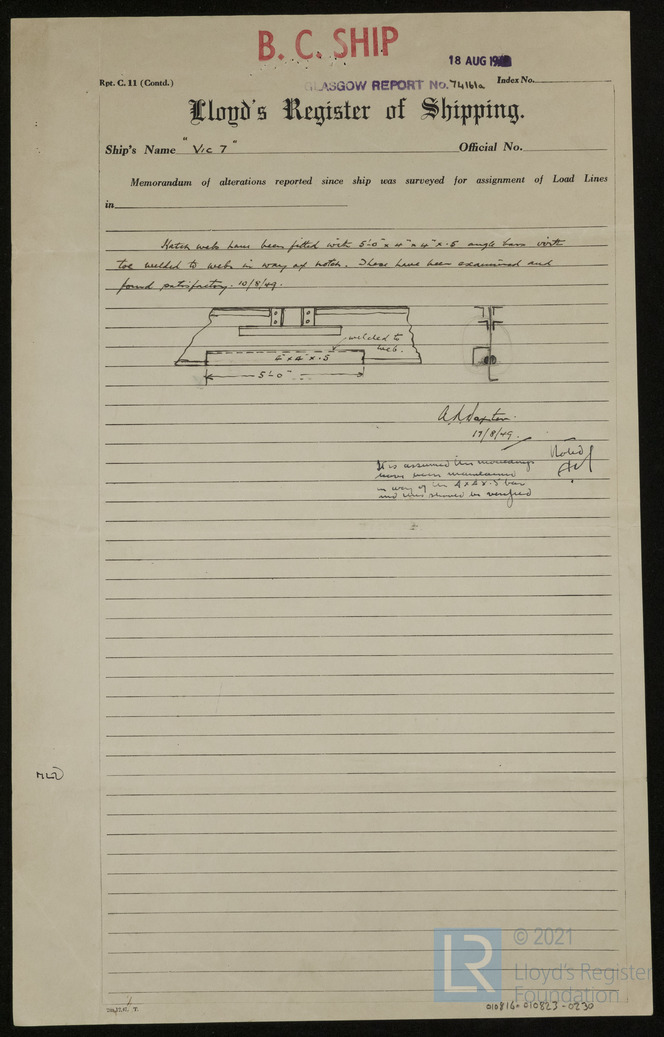 B. C. SHIP
18 AUG 19
Rpt. C. 11 (Contd.)
GLASGOW REPORT No. 74161a
Index No.
Lloyd's Register of Shipping.
Ship's Name "Vic 7"
Official No.
Memorandum of alterations reported since ship was surveyed for assignment of Load Lines
in
Hatch webs have been fitted with 5'-0" x 4" x 4" x .5 angle bars with
toe welded to webs in way of notch. These have been examined and
found satisfactory. 10/8/49.
welded to
web.
x 4 x .5
5'-0"
17/8/49.
Noted
It is assumed the mouldings
have been maintained
in way of the 4 x 4 x .5 bar
and this should be verified
© 2021
LR
Lloyd's Register
Foundation
010816-010823-0230